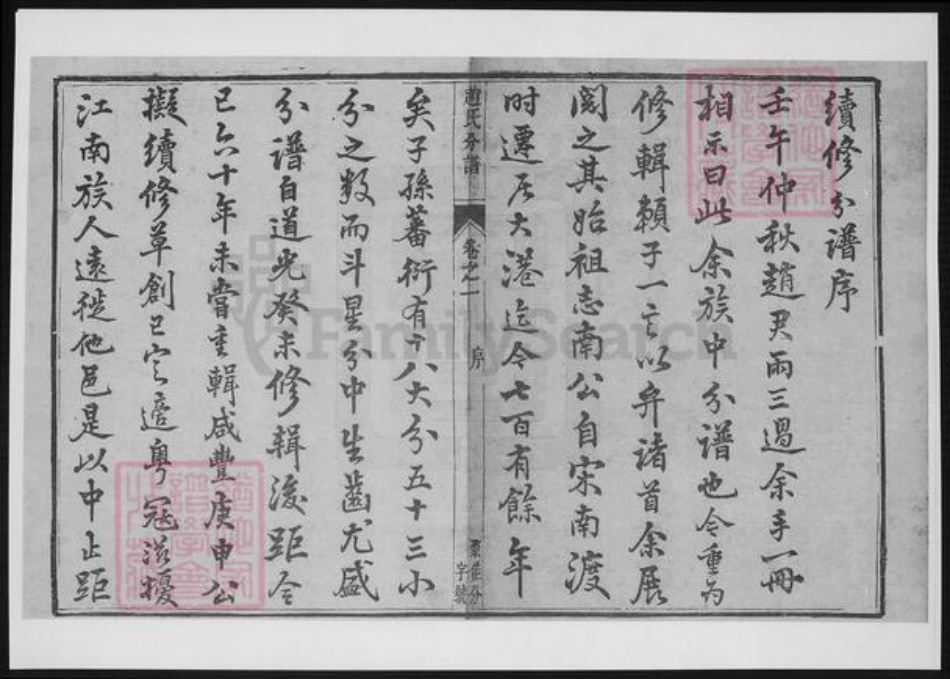 續修分譜序
壬午仲秋趙君雨三過余手一冊
相示曰此余族中分譜也今重為
修輯賴子一言以弁諸首余展
閱之其始祖忐南公自宋南渡
时遷居大港迄今七百有餘年
趙氏分譜
卷之一
序
分
字號
矣子孫蕃衍有十八大分五十三小
分之数而斗星分中生齒尤盛
分譜自道光癸未修輯後距今
已六十年未嘗重輯咸豐庚申公
擬續修草創已定適粤寇滋擾
江南族人遠徙他邑是以中止距
FamilySearch